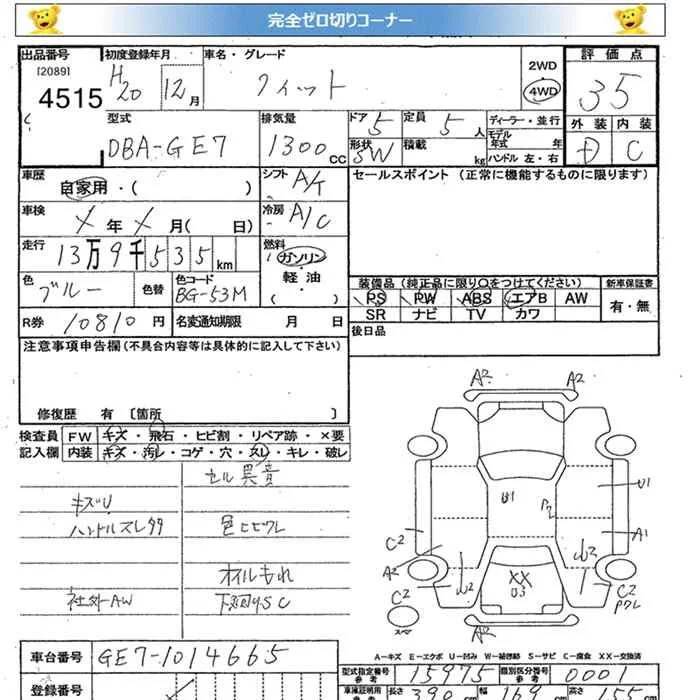 完全ゼロ切りコーナー
出品番号 初度登録年月 車名・グレード 2WD 評価点
[2089] H20 12月 フィット 4WD 35
4515
型式 排気量 ドア 5 定員 5人 ディーラー・並行 外装 内装
DBA-GE7 1300cc 形状 SW 積載 kg モデル年式 年 ハンドル 左・右 D C
車歴 自家用・( ) シフト A/T セールスポイント (正常に機能するものに限ります)
車検 X年X月( 日) 冷房 A/C
走行 13万9千535km 燃料 ガソリン
軽油
( )
色 ブルー 色替 色コード BG-53M 装備品 (純正品に限り○をつけてください) 新車保証書
PS PW ABS エアB AW 有・無
R券 10810円 名変通知期限 月 日 SR ナビ TV カワ
注意事項申告欄(不具合内容等は具体的に記入して下さい) 後日品
修復歴 有 〔箇所 〕
検査員 FW キズ・飛石・ヒビ割・リペア跡・×要
記入欄 内装 キズ・汚レ・コゲ・穴・スレ・キレ・破レ
セル異音
キズU
ハンドルスレ
色ヒビワレ
オイルもれ
社外AW 下回りSC
A2 A2
U1 P2 U1
A1
C2
A2 W2 W2
XX
U3
C2 C2
A2
A-キズ E-エクボ U-凹み W-補修跡 S-サビ C-腐食 XX-交換済
車台番号 GE7-1014665
型式指定番号 参考 15975 類別区分番号 参考 0001
登録番号
車庫証明用 参考 長さ 390cm 幅 169cm 高さ 155cm